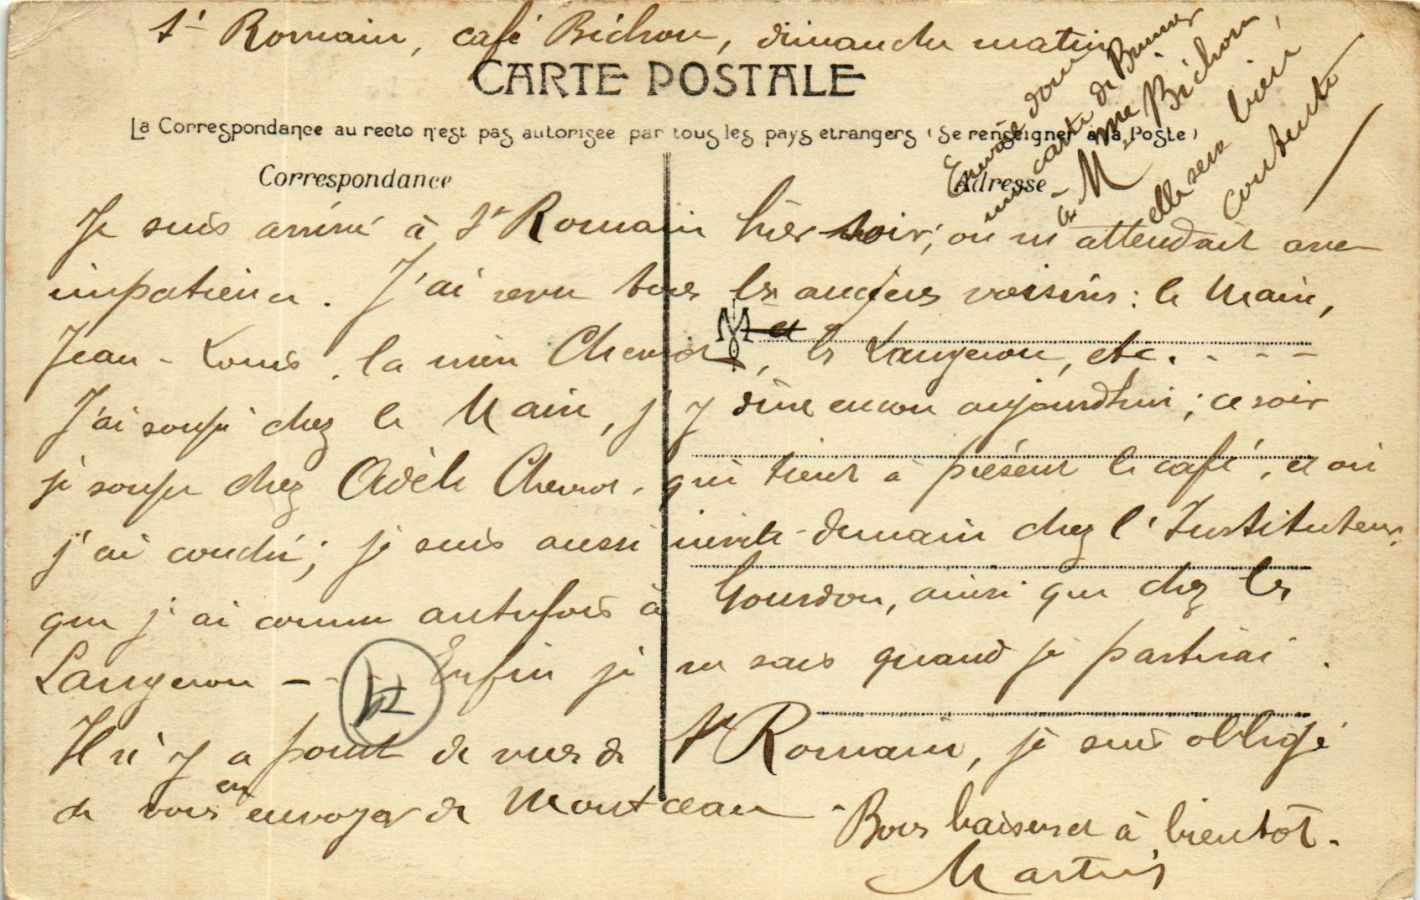 St Romain, café Bichon, dimanche matin
CARTE POSTALE
La Correspondance au recto n'est pas autorisée par tous les pays etrangers (Se renseigner à la Poste)
Correspondance
Adresse
Envoie donc
une carte de
à Mme Bichon,
elle sera bien
contente
Je suis arrivé à St Romain hier soir; on m'attendait avec
impatience. J'ai revu tous les anciens voisins: le Maire,
Jean-Louis, la mère Chevrot, les Langeron, etc. . - -
J'ai soupé chez le Maire, j'y dîne encore aujourd'hui; ce soir
je soupe chez Adèle Chevrot, qui tient à présent le café, et où
j'ai couché; je suis aussi invité demain chez l'Instituteur
que j'ai connu autrefois à Gourdon, ainsi que chez les
Langeron - - Enfin je ne sais quand je partirai.
Il n'y a point de vues de St Romain, je suis obligé
de vous en envoyer de Montceau
Bons baisers et à bientôt.
Martin